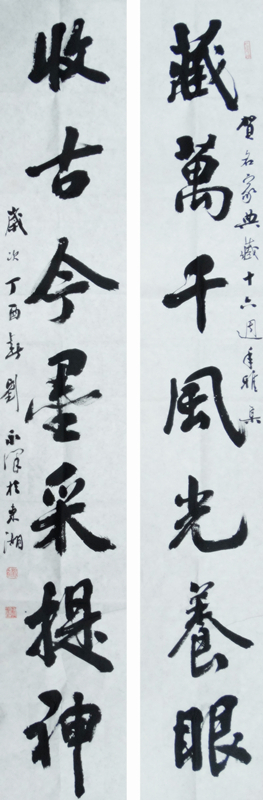 藏萬千風光養眼
賀名家典藏十六週年雅集
收古今墨采提神
歲次丁酉春劉永澤於東湖